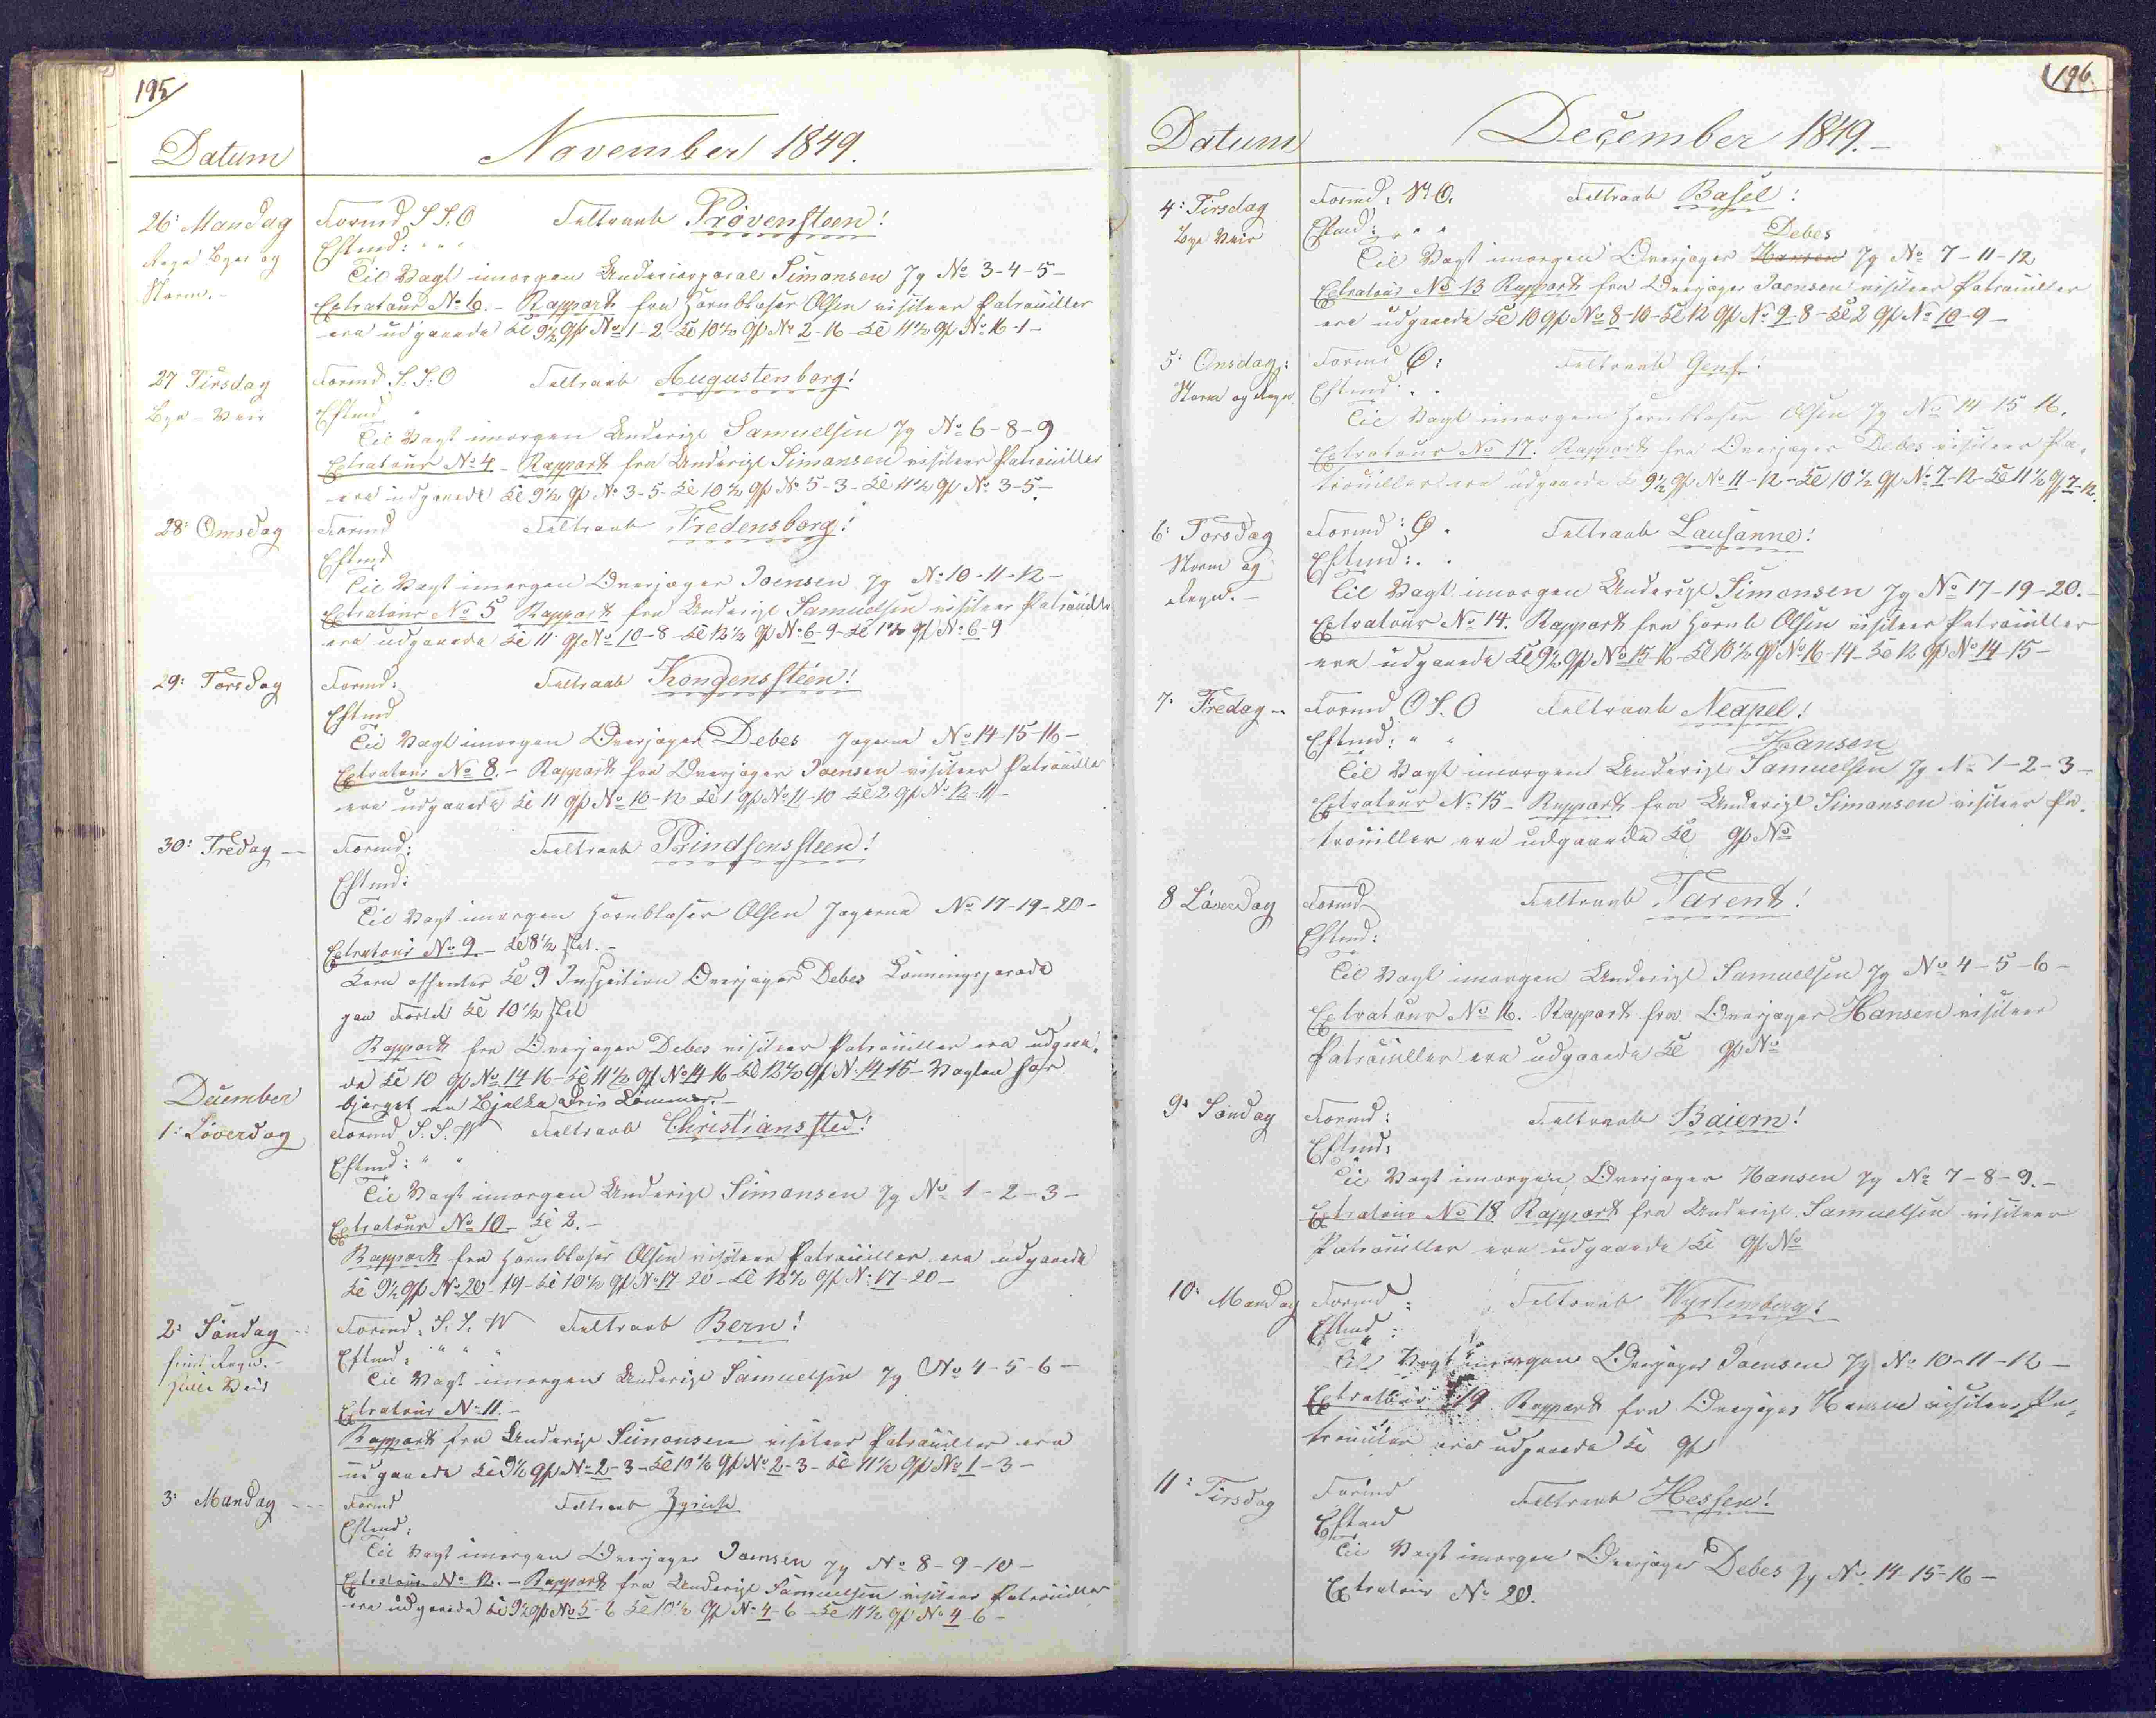 195
Datum
November 1849.
26: Mandag
Regn Byer og
Storm.-
Formd S. S. O Feltraab Prøvensteen!
Eftmd: " " "
Til Vagt imorgen Undercorporal Simonsen Jg No 3-4-5-
Extratour No 6.- Rapport fra Hornblæser Olsen visiteer Patrouiller
ere udgaaede Kl 9½ gf No 1-2- Kl 10½ gf No 2-16- Kl 11½ gf No 16-1-
27 Tirsdag
Bye-Veir
Formd S. S. O Feltraab Augustenborg!
Eftmd "
Til Vagt imorgen Underigl Samuelsen Jg No 6-8-9
Extratour No 4- Rapport fra Underigl Simonsen visiteer Patrouiller
ere udgaaede Kl 9½ gf No 3-5- Kl 10½ gf No 5-3- Kl 11½ gf No 3-5-
28: Onsdag
Formd Feltraab Fredensborg!
Eftmd
Til Vagt imorgen Overjæger Joensen Jg No 10-11-12-
Extratour No 5 Rapport fra Underigl Samuelsen visiteer Patrouiller
ere udgaaede Kl 11 gf No 10-8- Kl 12½ gf No 6-9- Kl 1½ gf No 6-9
29: Torsdag
Formd: Feltraab Kongenssteen!
Eftmd
Til Vagt imorgen Overjæger Debes Jægerne No 14-15-16-
Extratour No 8.- Rapport fra Overjæger Joensen visiteer Patrouiller
ere udgaaede Kl 11 gf No 10-12 Kl 1 gf No 11-10 Kl 2 gf No 12-11-
30: Fredag -
Formd: Feltraab Prindsenssteen!
Eftmd:
Til Vagt imorgen Hornblæser Olsen Jægerne No 17-19-20-
Extratour No 9- Kl 8½ slet.-
Korn afhentes Kl 9 Inspection Overjæger Debes Lønningsparade
paa Fortet Kl 10½ slet
Rapport fra Overjæger Debes visiteer Patrouiller ere udgaae-
de Kl 10 gf No 14-16- Kl 11½ gf No 14-16- Kl 12½ gf No 14-15- Vagten har
bjerget en Bjelke Driv Tømmer.-
December
1: Løverdag
Formd S. S. W Feltraab Christianssted!
Eftmd: " "
Til Vagt imorgen Underigl Simonsen Jg No 1-2-3-
Extratour No 10- Kl 2.-
Rapport fra Hornblæser Olsen visiteer Patrouiller ere udgaaede
Kl 9½ gf No 20-19- Kl 10½ gf No 17-20- Kl 12½ gf No 17-20-
2: Søndag
fiint Regn.-
stille Veir
Formd: S. S. W Feltraab Bern!
Eftmd: " " "
Til Vagt imorgen Underigl Samuelsen Jg No 4-5-6-
Extratour No 11.-
Rapport fra Underigl Simonsen visiteer Patrouiller ere
udgaaede Kl 9½ gf No 2-3- Kl 10½ gf No 2-3- Kl 11½ gf No 1-3-
3: Mandag
Formd Feltraab Zyrich
Eftmd:
Til Vagt imorgen Overjæger Joensen Jg No 8-9-10-
Extratour No 12.- Rapport fra Underigl Samuelsen visiteer Patrouiller
ere udgaaede Kl 9½ gf No 5-6 Kl 10½ gf No 4-6- Kl 11½ gf No 4-6-
196.
Datum
December 1849.-
4: Tirsdag
Bye Veir
Formd: N. O. Feltraab Basel!
Eftmd: " "
Debes
Til Vagt imorgen Overjæger Hansen Jg No 7-11-12
Extratour No 13 Rapport fra Overjæger Joensen visiteer Patrouiller
ere udgaaede Kl 10 gf No 8-10- Kl 12 gf No 9-8- Kl 2 gf No 10-9-
5: Onsdag:
Storm og Regn.
Formd O: Feltraab Genf!
Eftmd: "
Til Vagt imorgen Hornblæser Olsen Jg No 14 15 16.
Extratour No 17. Rapport fra Overjæger Debes visiteer Pa-
trouiller ere udgaaede Kl 9½ gf No 11-12- Kl 10½ gf No 7-12- Kl 11½ gf 7-12.
6: Torsdag
Storm og
Regn.-
Formd: O. Feltraab Lausanne!
Eftmd: "
Til Vagt imorgen Underigl Simonsen Jg No 17-19-20.-
Extratour No 14. Rapport fra Hornb Olsen visiteer Patrouiller
ere udgaaede Kl 9½ gf No 15-16- Kl 10½ gf No 16-14- Kl 12 gf No 14-15-
7: Fredag -
Formd O S. O Feltraab Neapel!
Eftmd: " "
Hansen
Til Vagt imorgen Underigl Samuelsen Jg No 1-2-3-
Extratour No 15- Rapport fra Underigl Simonsen visiteer Pa-
trouiller ere udgaaede Kl gf No
8 Løverdag
Formd Feltraab Tarent!
Eftmd:
Til Vagt imorgen Underigl Samuelsen Jg No 4-5-6-
Extratour No 16. Rapport fra Overjæger Hansen visiteer
Patrouiller ere udgaaede Kl gf No
9: Søndag
Formd: Feltraab Baiern!
Eftmd:
Til Vagt imorgen Overjæger Hansen Jg No 7-8-9.-
Extratour No 18 Rapport fra Underigl Samuelsen visiteer
Patrouiller ere udgaaede Kl gf No
10: Mandag
Formd: Feltraab Wyrtemberg!
Eftmd:
Til Vagt imorgen Overjæger Joensen Jg No 10-11-12-
Extratour 19 Rapport fra Overjæger Hansen visiteer Pa-
trouiller ere udgaaede Kl gf
11: Tirsdag
Formd Feltraab Hessen!
Eftmd
Til Vagt imorgen Overjæger Debes Jg No 14-15-16-
Extratour No 20.